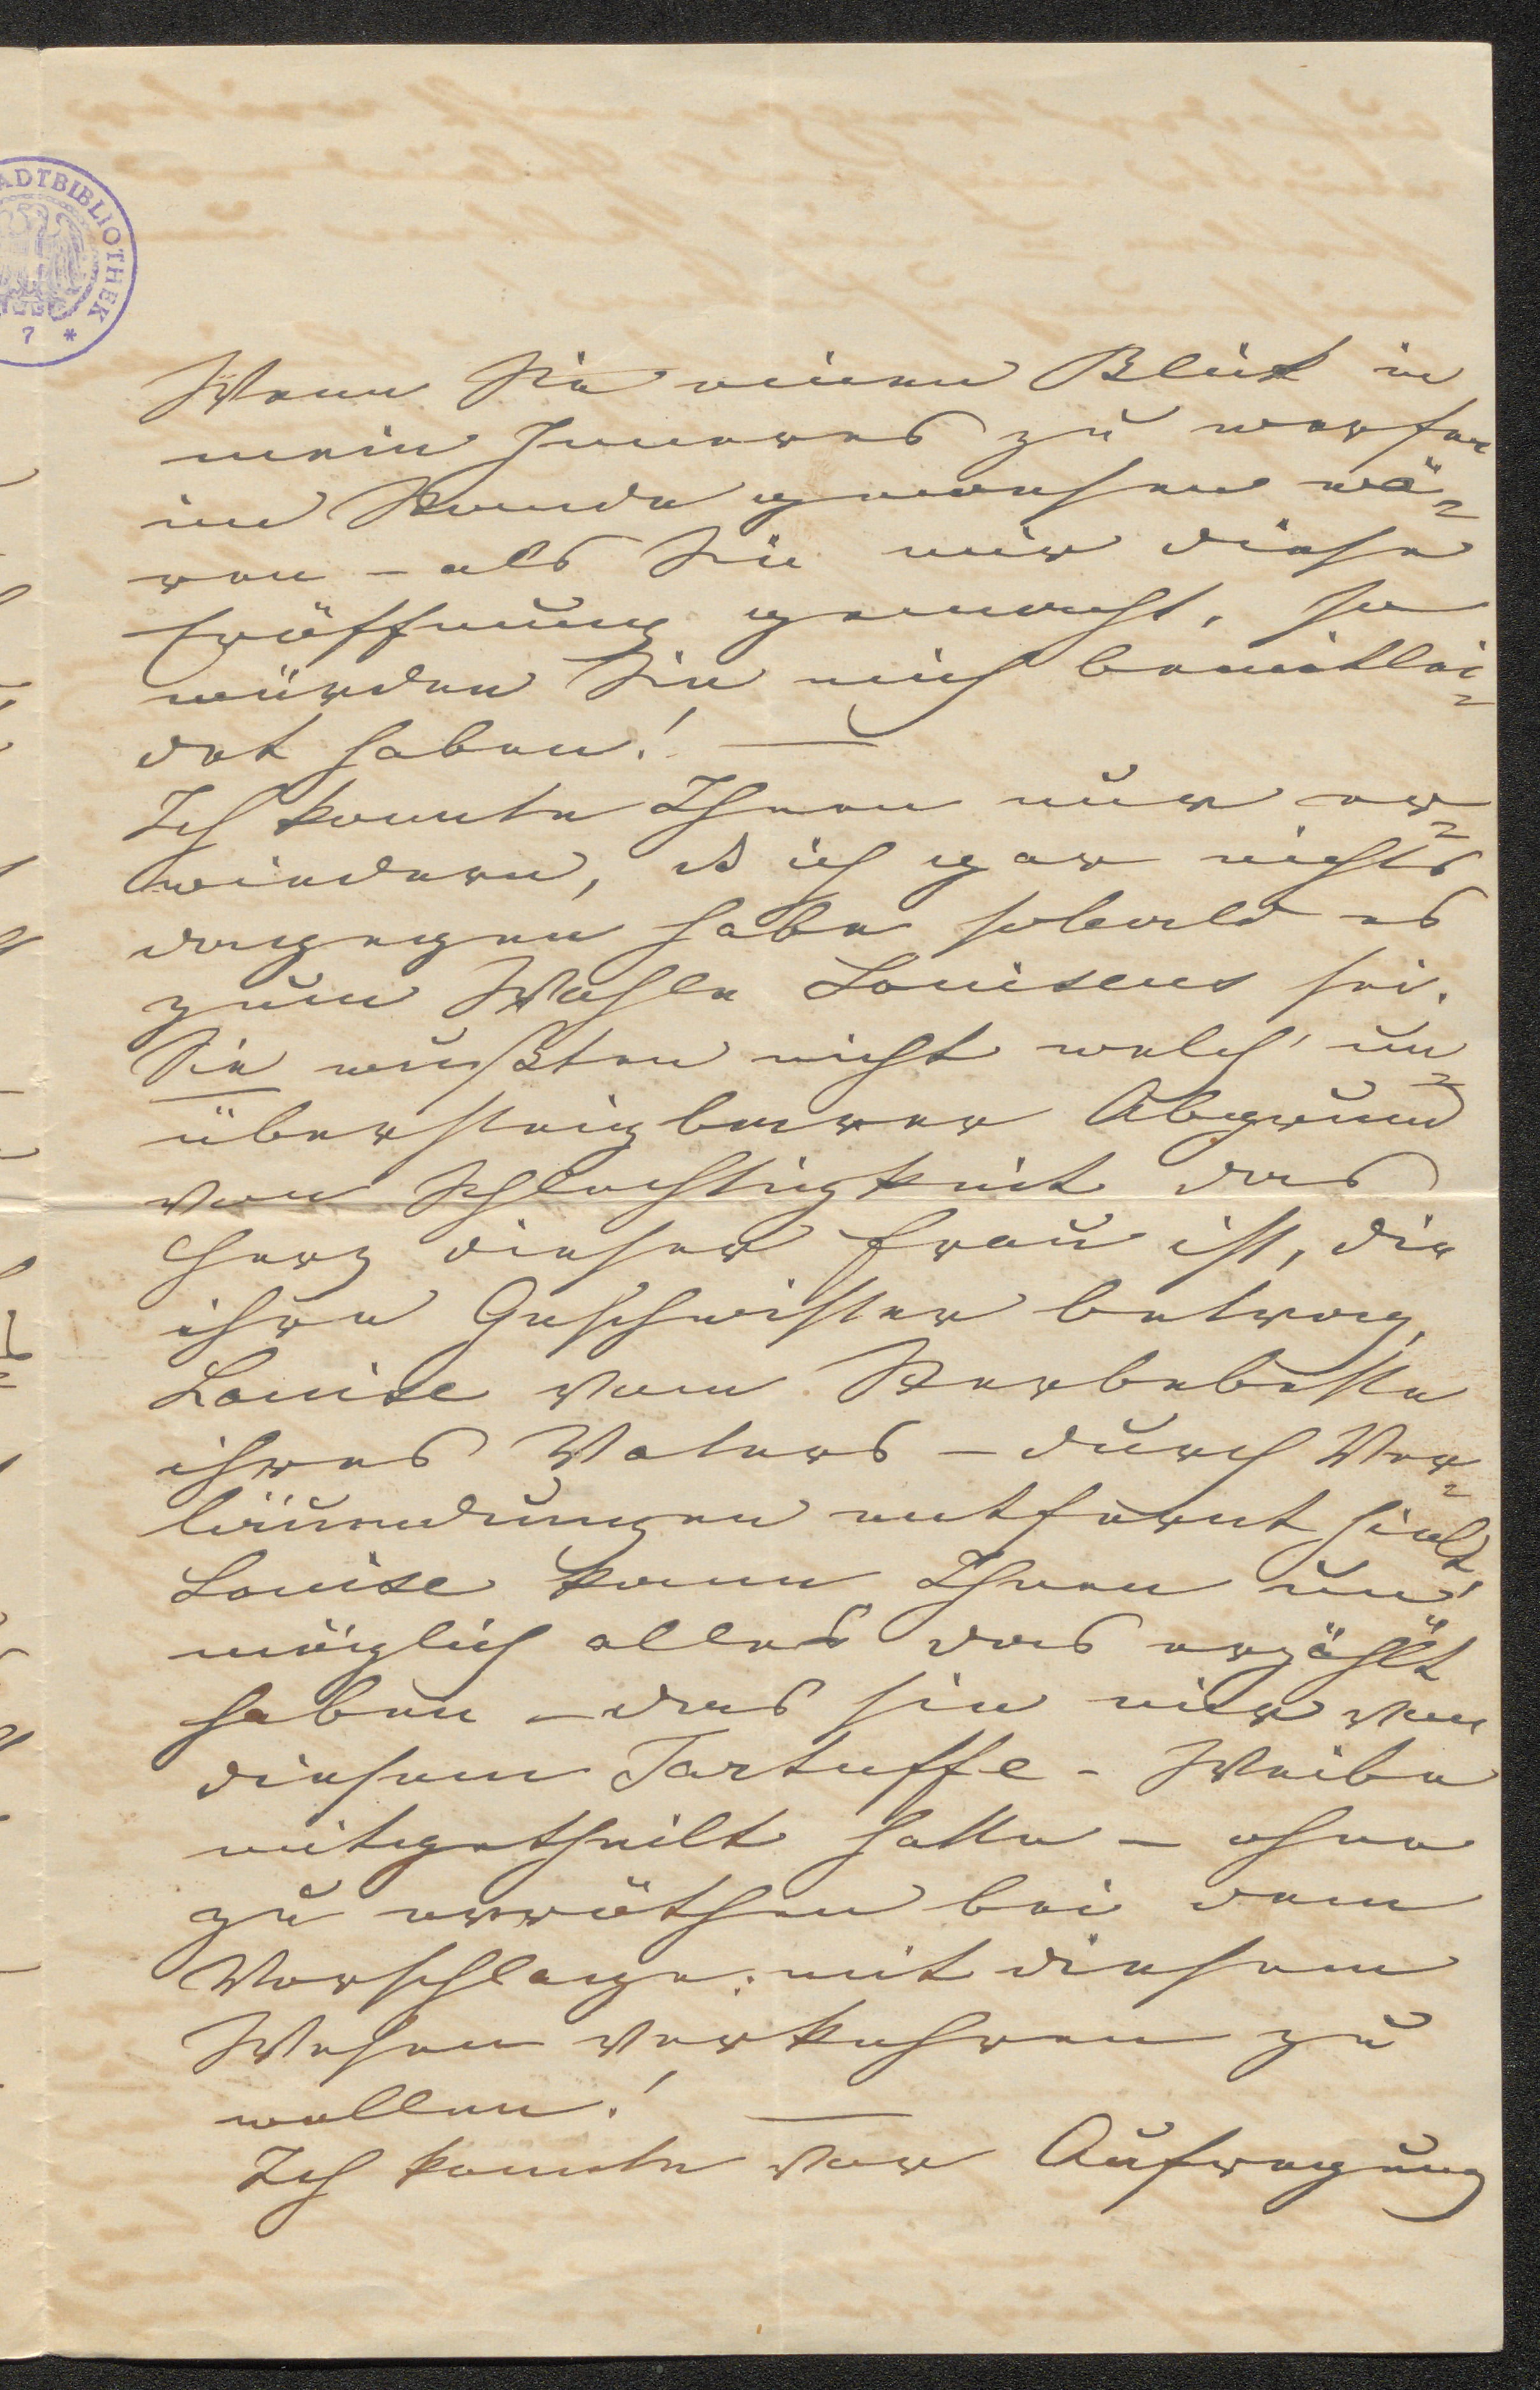 ADTBIBLIOTHEK
7 *
Wenn Sie einen Blick in
mein Inneres zu werfen
im Stande gewesen wä-
ren – als Sie mir diese
Eröffnung gemacht, so
würden Sie mich bemitlei-
det haben! —
Ich konnte Ihnen nur er-
wiedern, ds ich gar nichts
dagegen habe sobald es
zum Wohle Louisens sei.
Sie wußten nicht welch' un-
übersteigbarer Abgrund
von Schlechtigkeit das
Herz dieser Frau ist, die
ihre Geschwister betrog,
Louise vom Sterbebette
ihres Vaters – durch Ver-
läumdungen entfernt hielt,
Louise kann Ihnen un-
möglich alles das erzählt
haben – das sie mir von
diesem Tartuffe-Weibe
mitgetheilt hatte – ohne
zu erröthen bei dem
Vorschlage: mit diesem
Wesen verkehren zu
wollen! —
Ich konnte vor Aufregung